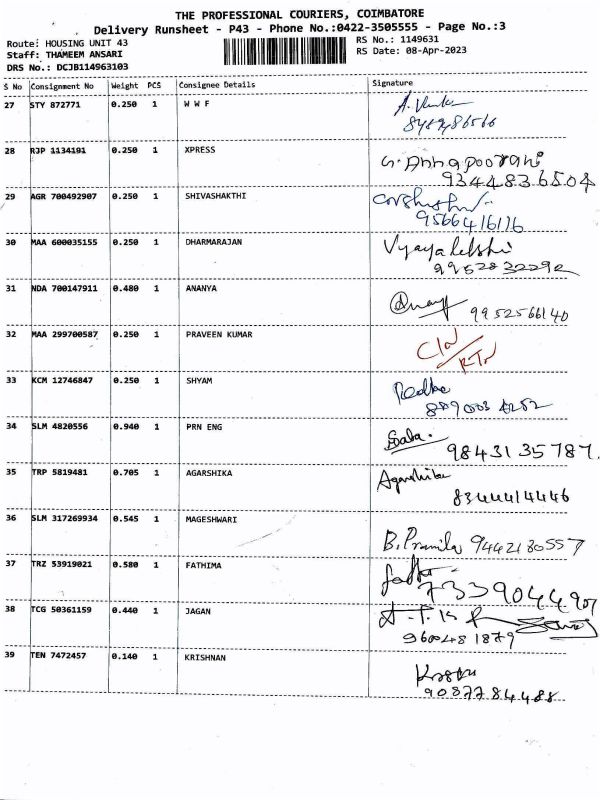 THE PROFESSIONAL COURIERS, COIMBATORE
Delivery Runsheet - P43 - Phone No.:0422-3505555 - Page No.:3
Route: HOUSING UNIT 43
RS No.: 1149631
Staff: THAMEEM ANSARI
RS Date: 08-Apr-2023
DRS No.: DCJB114963103
S No Consignment No Weight PCS Consignee Details Signature
27 STY 872771 0.250 1 W W F
28 RJP 1134191 0.250 1 XPRESS G. Annapoorani
9344836504
29 AGR 700492907 0.250 1 SHIVASHAKTHI
9566416116
30 MAA 600035155 0.250 1 DHARMARAJAN Vyayalakshi
9952832292
31 NDA 700147911 0.480 1 ANANYA
9952566140
32 MAA 299700587 0.250 1 PRAVEEN KUMAR
RTN
33 KCM 12746847 0.250 1 SHYAM
34 SLM 4820556 0.940 1 PRN ENG
9843135787.
35 TRP 5819481 0.705 1 AGARSHIKA Agarshika
8344414446
36 SLM 317269934 0.545 1 MAGESHWARI
B. Pramila 9442180557
37 TRZ 53919021 0.580 1 FATHIMA
7339044907
38 TCG 50361159 0.440 1 JAGAN
9600481879
39 TEN 7472457 0.140 1 KRISHNAN
9087784488